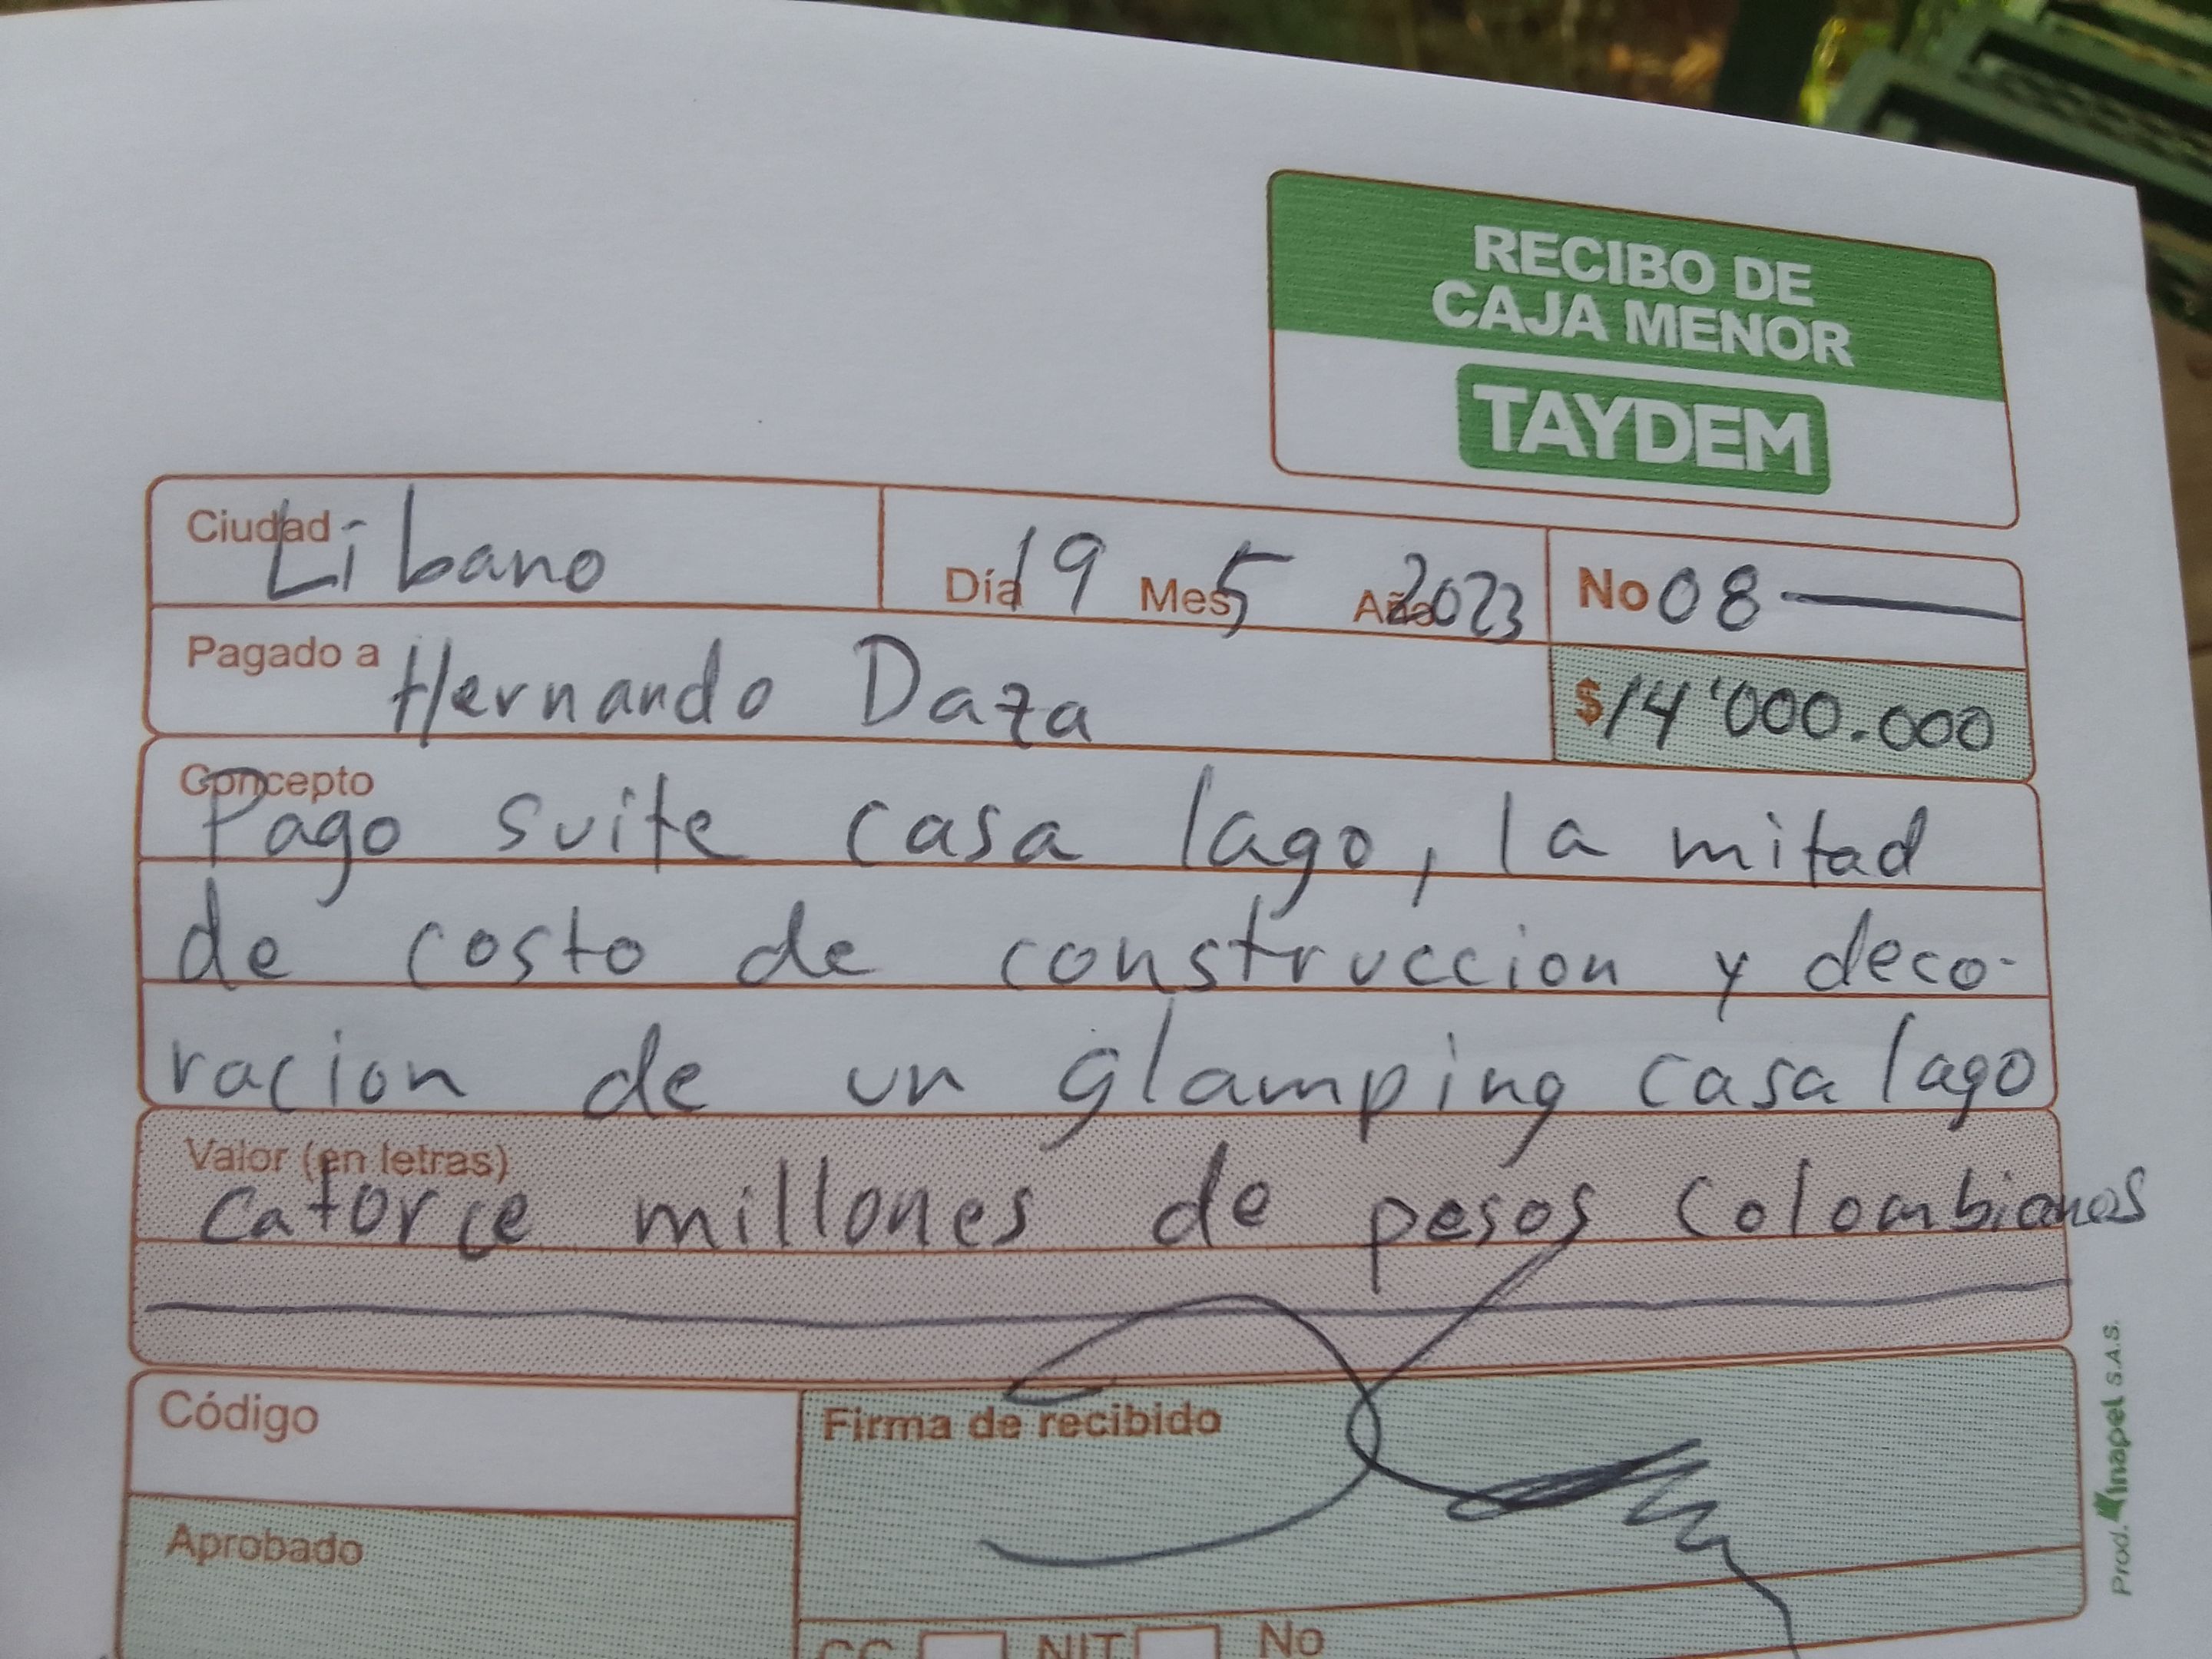 RECIBO DE
CAJA MENOR
TAYDEM
Ciudad Líbano
Día 19 Mes 5 Año 2023
No 08
Pagado a Hernando Daza
$ 14'000.000
Concepto
Pago suite casa lago, la mitad
de costo de construccion y deco-
racion de un glamping casa lago
Valor (en letras)
catorce millones de pesos colombianos
Código
Firma de recibido
Aprobado
CC NIT No
Prod. Minapel S.A.S.